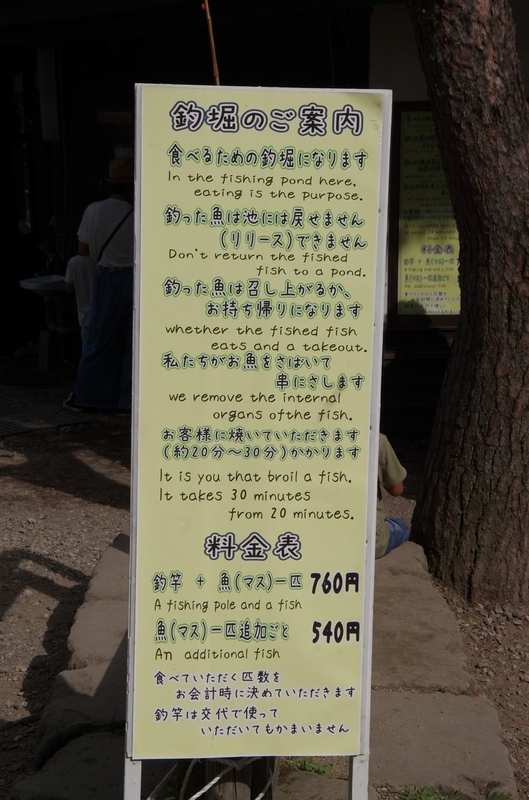 釣堀のご案内
食べるための釣堀になります
In the fishing pond here.
eating is the purpose.
釣った魚は池には戻せません
(リリース)できません
Don't return the fished
fish to a pond.
釣った魚は召し上がるか、
お持ち帰りになります
whether the fished fish
eats and a takeout.
私たちがお魚をさばいて
串にさします
we remove the internal
organs ofthe fish.
お客様に焼いていただきます
(約20分〜30分)かかります
It is you that broil a fish.
It takes 30 minutes
from 20 minutes.
料金表
釣竿 + 魚(マス)一匹 760円
A fishing pole and a fish
魚(マス)一匹追加ごと 540円
An additional fish
食べていただく匹数を
お会計時に決めていただきます
釣竿は交代で使って
いただいてもかまいません
料金表